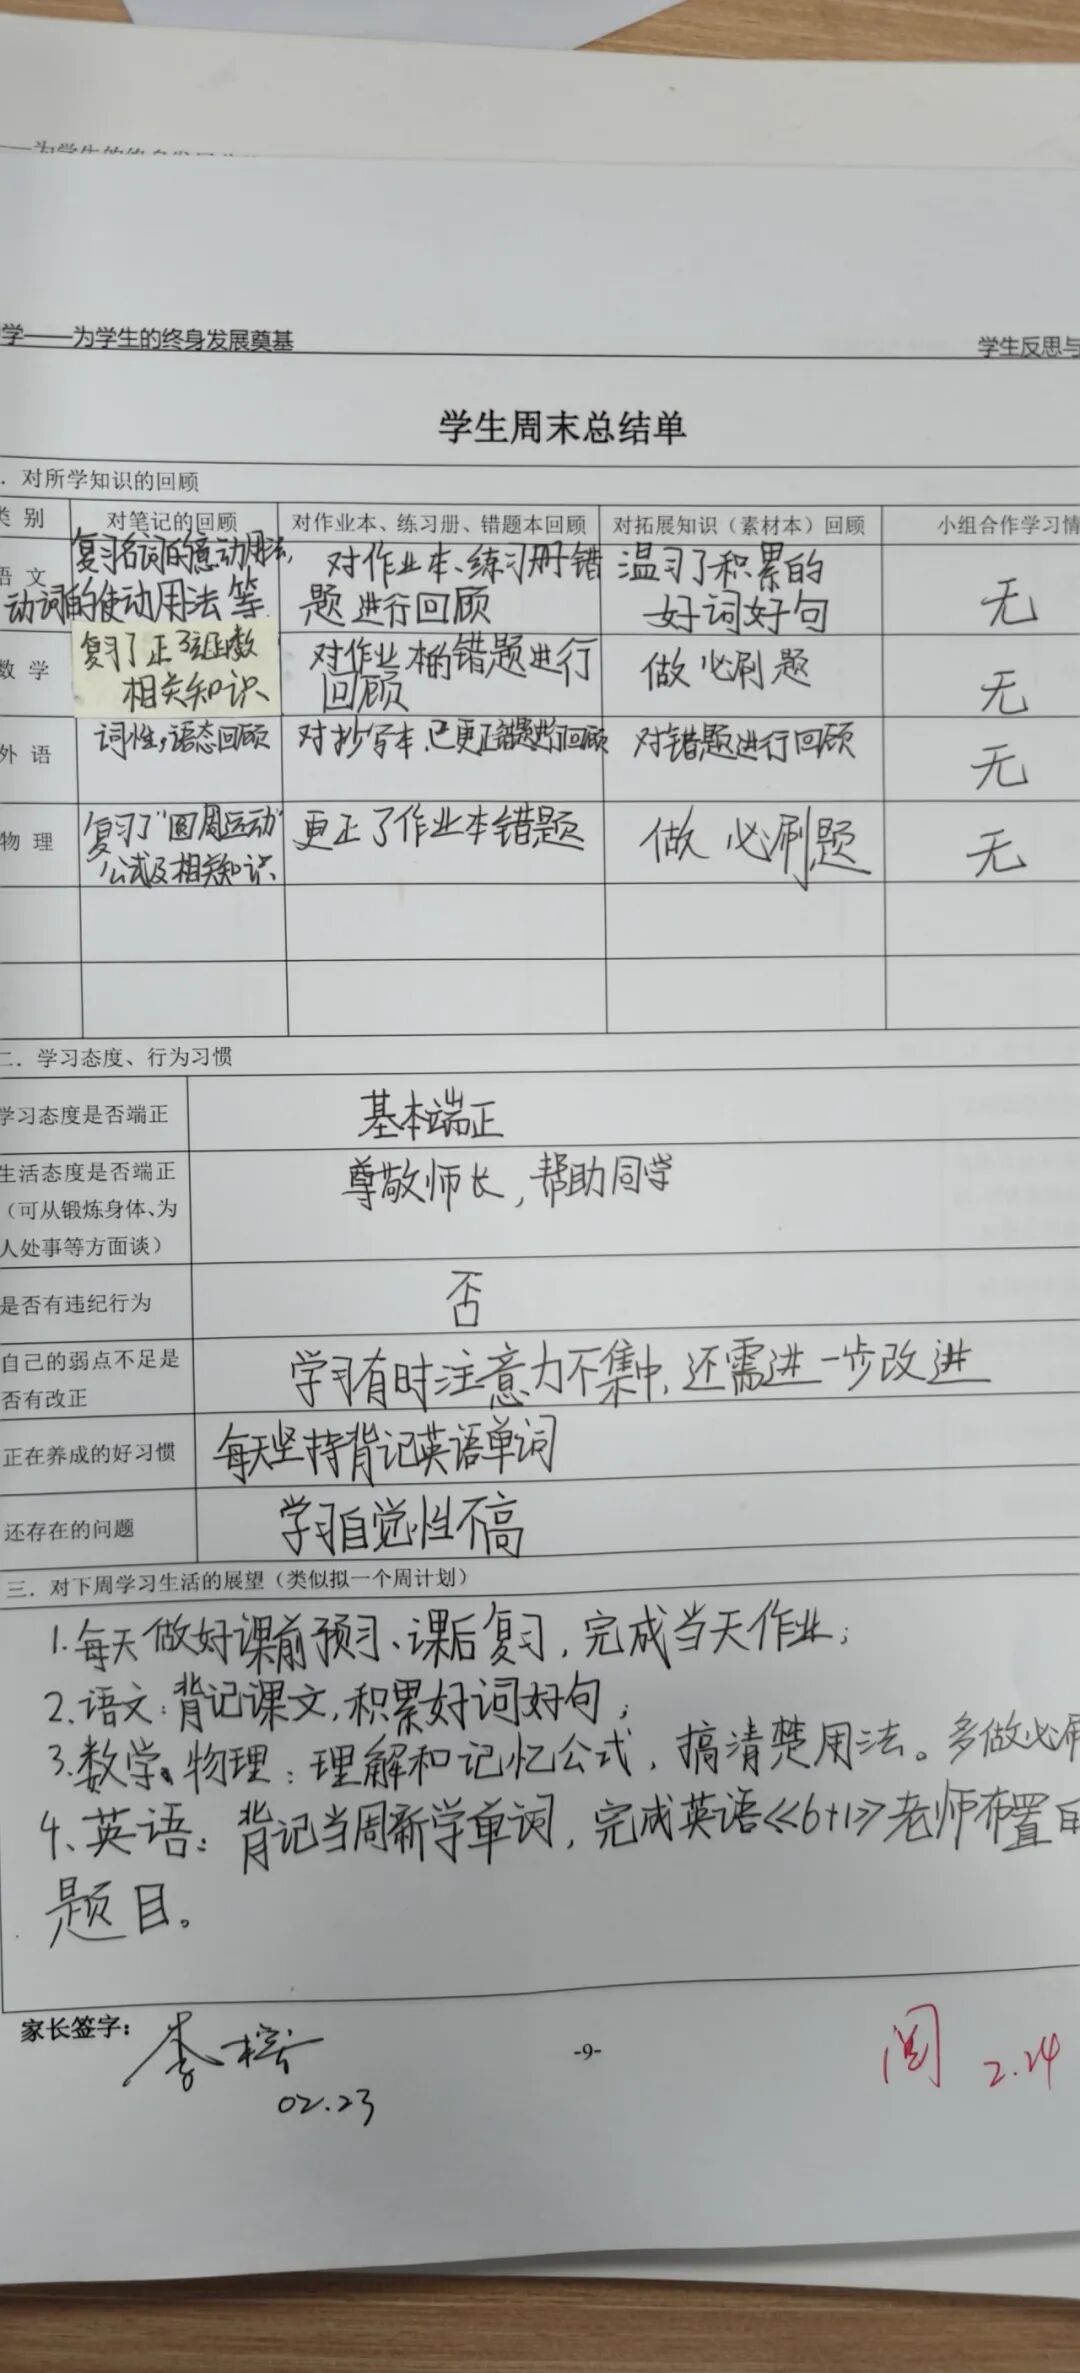 学——为学生的终身发展奠基
学生反思与
学生周末总结单
. 对所学知识的回顾
类 别 对笔记的回顾 对作业本、练习册、错题本回顾 对拓展知识（素材本）回顾 小组合作学习情
语 文 复习名词的意动用法, 对作业本、练习册错 温习了积累的 无
动词的使动用法等 题进行回顾 好词好句
数 学 复习了正弦函数 对作业本的错题进行 做必刷题 无
相关知识 回顾
外 语 词性,语态回顾 对抄写本,已更正错题进行回顾 对错题进行回顾 无
物 理 复习了"圆周运动" 更正了作业本错题 做 必刷题 无
公式及相关知识
二. 学习态度、行为习惯
学习态度是否端正 基本端正
生活态度是否端正 尊敬师长, 帮助同学
（可从锻炼身体、为
人处事等方面谈）
是否有违纪行为 否
自己的弱点不足是 学习有时注意力不集中, 还需进一步改进
否有改正
正在养成的好习惯 每天坚持背记英语单词
还存在的问题 学习自觉性不高
三. 对下周学习生活的展望（类似拟一个周计划）
1. 每天做好课前预习、课后复习, 完成当天作业;
2. 语文: 背记课文, 积累好词好句;
3. 数学、物理: 理解和记忆公式, 搞清楚用法。多做必刷
4、英语: 背记当周新学单词, 完成英语《6+1》老师布置的
题目。
家长签字: 李
02.23
-9-
阅 2.24